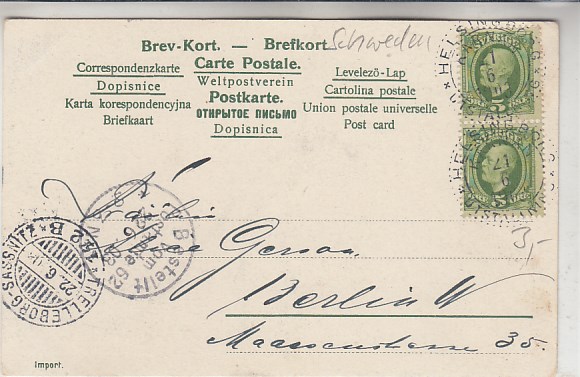 Brev-Kort. — Brefkort
Schweden
Correspondenzkarte
Carte Postale.
Levelező-Lap
Dopisnice
Weltpostverein
Cartolina postale
Karta korespondencyjna
Postkarte.
Union postale universelle
Briefkaart
ОТКРЫТОЕ ПИСЬМО
Post card
Dopisnica
HELSINGBORG
HELSINGBORG
5
5
Bestellt
vom
TRELLEBORG-SASSNITZ
22.6.
3,-
Gerson
Berlin W
Maassenstrasse 35.
Import.